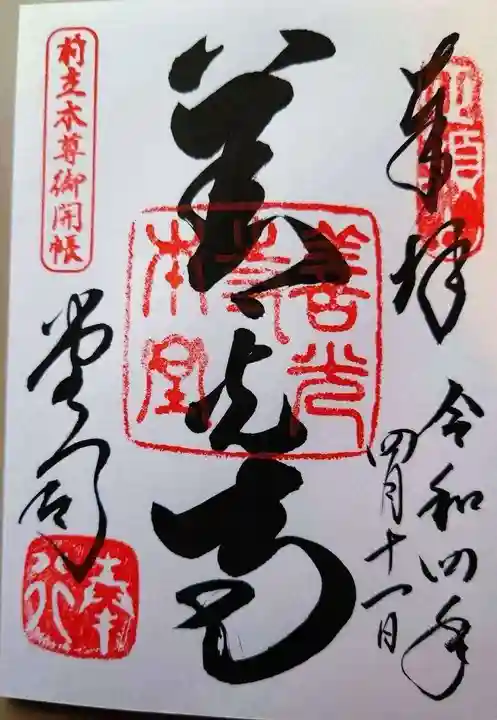 奉拝
令和四年
四月十一日
善光寺
善光寺本堂
前立本尊御開帳
堂司